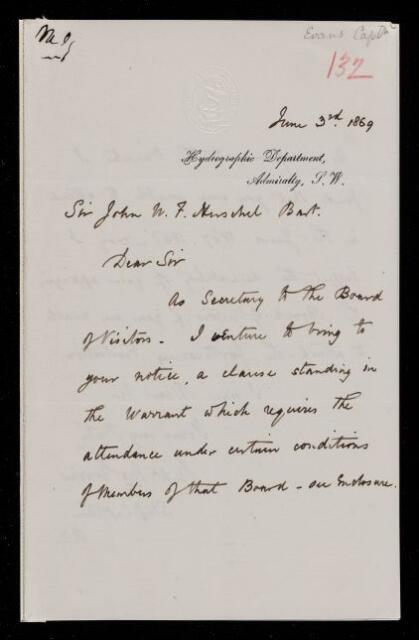 Evans Captn
132
June 3rd. 1869
Hydrographic Department,
Admiralty, S.W.
Sir John W. F. Herschel Bart.
Dear Sir
As Secretary to the Board
of Visitors - I venture to bring to
your notice, a clause standing in
the Warrant which requires the
attendance under certain conditions
of Members of that Board - see Enclosure.